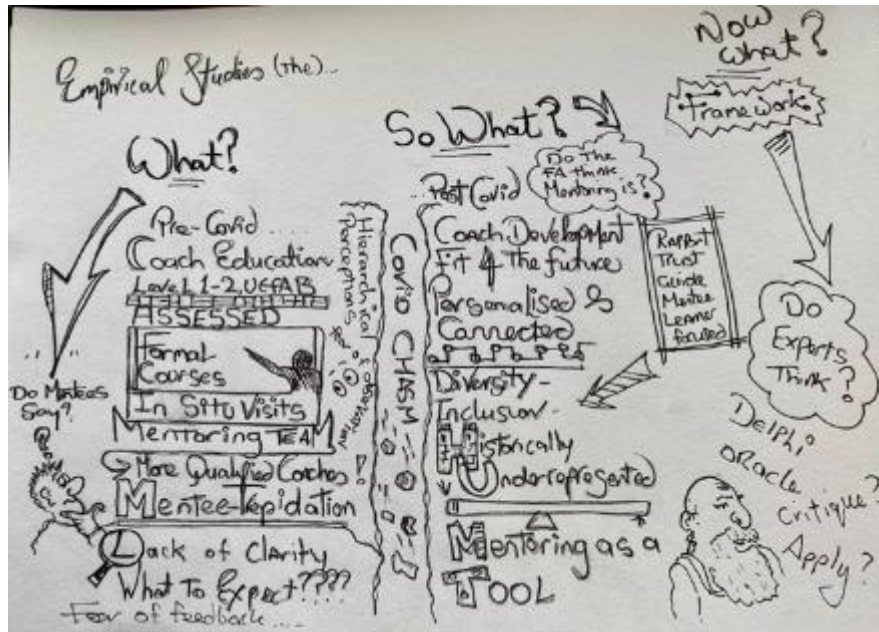 Empirical Studies (the)...
What?
Pre-Covid ....
Coach Education
Level 1-2, UEFA B
ASSESSED
Formal
Courses
In Situ Visits
Mentoring TEAM
More Qualified Coaches!
Mentee-trepidation
Lack of Clarity
What To Expect????
Fear of feedback....
Do Mentees
Say?
Hierarchical
perceptions
Fear of observation
Covid CHASM
So What?
Do The
FA think
Mentoring is?
Post Covid
Coach Development
Fit 4 The future
Personalised &
Connected
Diversity-
Inclusion-
Historically
Underrepresented
Mentoring as a
TOOL
Rapport
Trust
Guide
Mentee
Learner
focused
Now
What?
Framework
Do
Experts
Think?
Delphi
oracle
Critique?
Apply?